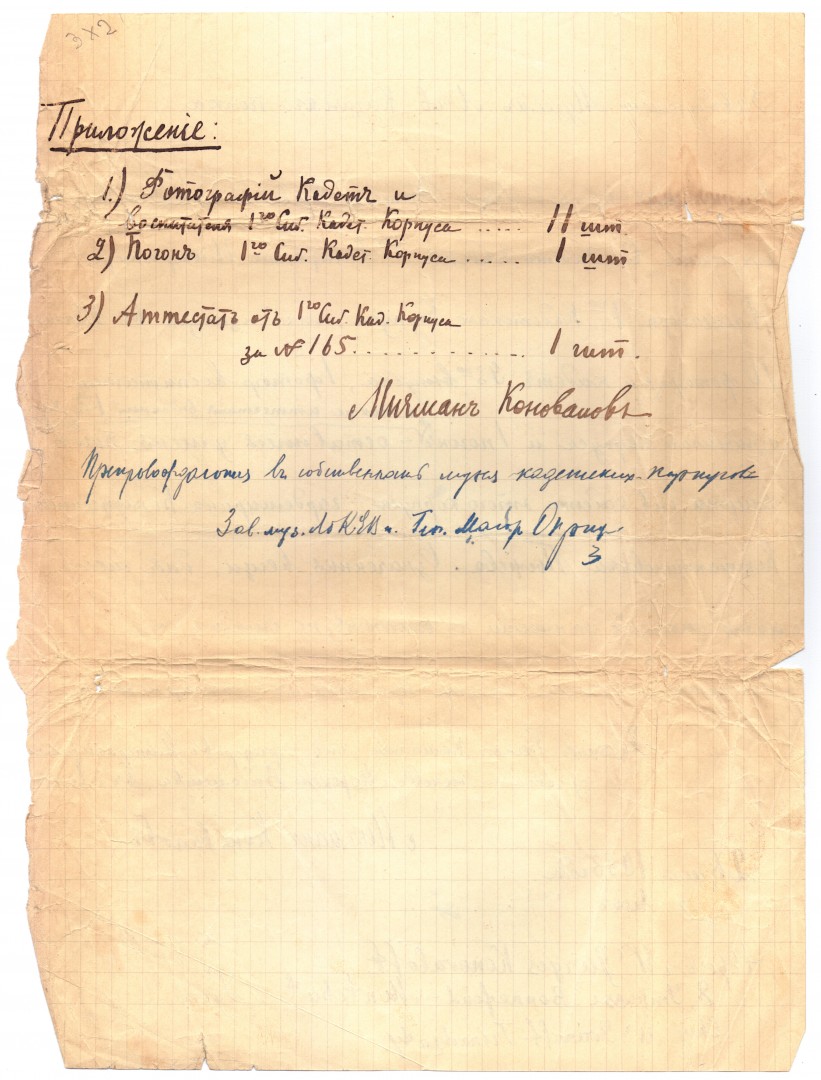 3x2
Приложенiе:
1.) Фотографiй Кадетъ и
воспитателя 1го Сиб. Кадет. Корпуса ..... 11 шт.
2) Погонъ 1го Сиб. Кадет. Корпуса ..... 1 шт
3) Аттестатъ отъ 1го Сиб. Кад. Корпуса
за № 165 ............. 1 шт.
Мичманъ Коноваловъ
въ музея кадетских корпусовъ
Зав. муз.